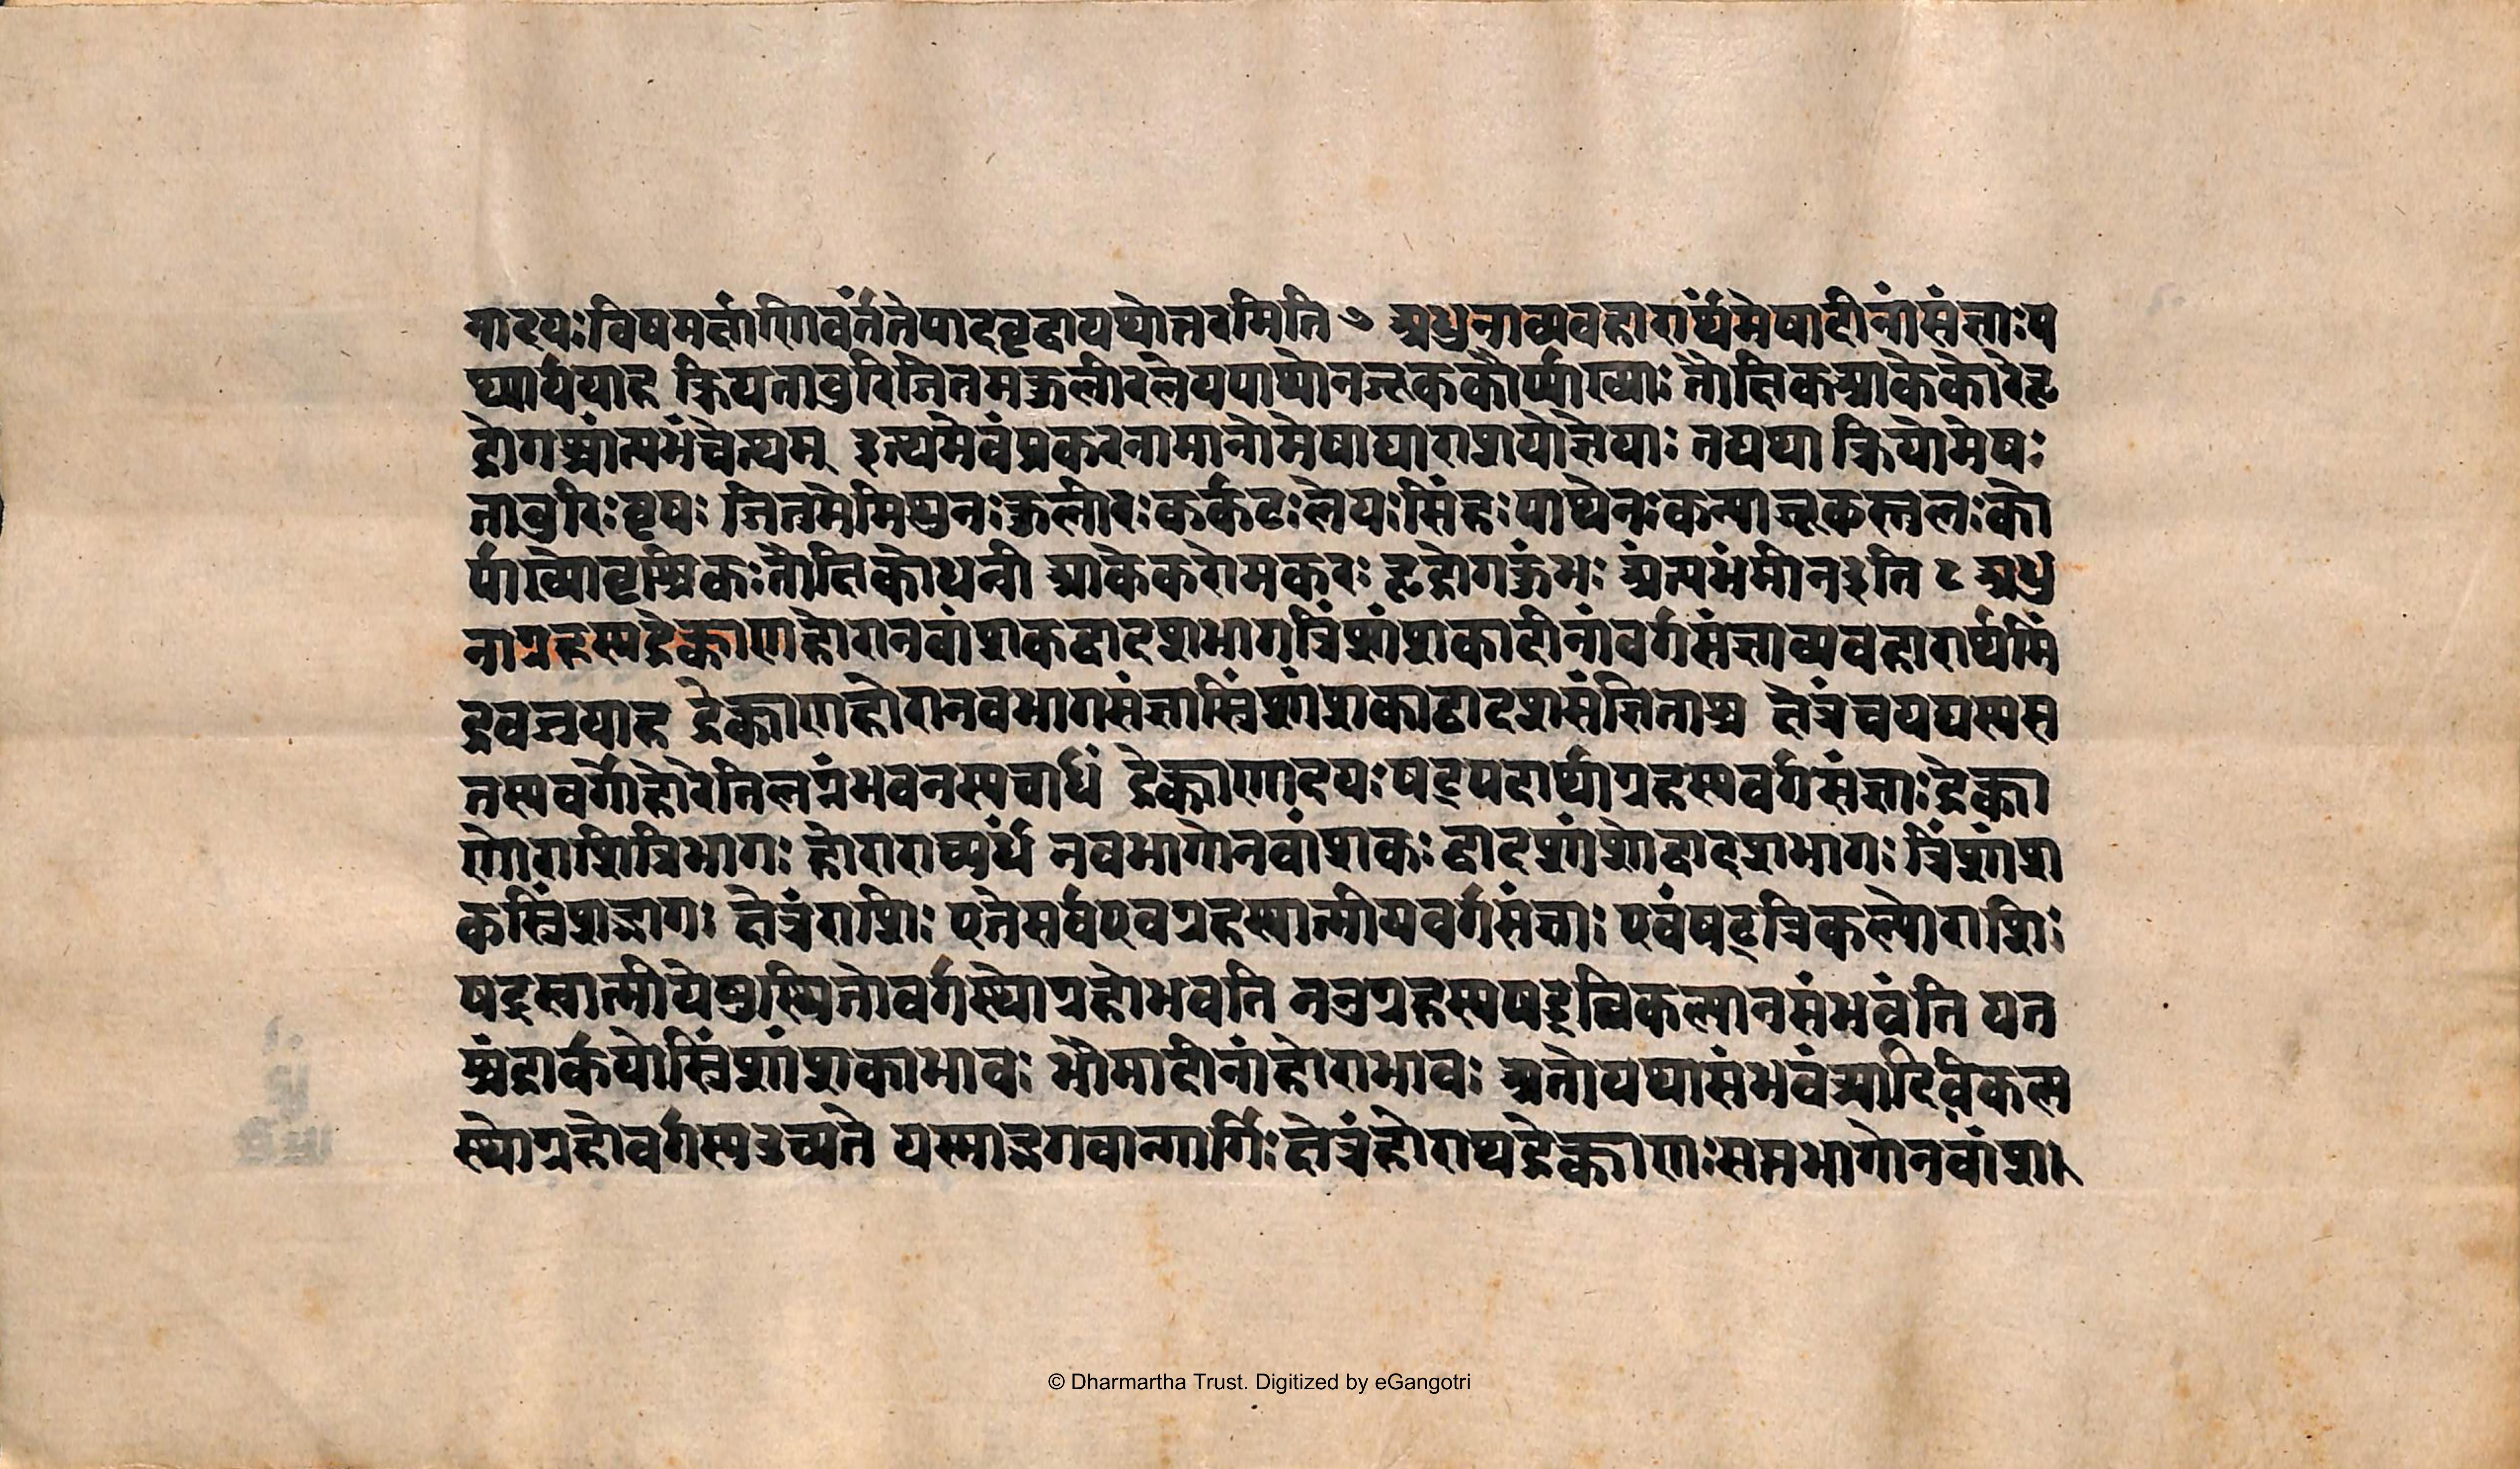 मादयः विषमर्त्तागिणवर्तंतेपादवृद्धायथोत्तरमिति ७ अधुनाव्यवहारार्थंमेषादीनांसंज्ञाः प
थ्यार्ययाह क्रियताबुरिजितमकुलीरलेयपाथोनजूककौर्प्याख्याः तौक्षिकआकेकोरेहृ
द्रोगश्चांत्यभंचेत्थम् इत्थमेवंप्रकरनामानोमेषाद्याराशयोज्ञेयाः तद्यथा क्रियोमेषः
ताबुरिः वृषः जितमोमिथुनः कुलीरः कर्कटः लेयः सिंहः पाथेनः कन्याजूकस्तुलः को
र्पाख्योवृश्चिकः तौक्षिकोधन्वी आकेकरोमकरः हृद्रोगकुंभः अंत्यभंमीनइति ८ अधु
नाग्रहस्यद्रेक्काणहोरानवांशकद्वादशभागत्रिंशांशकादीनांवर्गसंज्ञाव्यवहारार्थमिं
द्रवज्रयाह द्रेक्काणहोरानवभागसंज्ञास्त्रिंशांशकाद्वादशसंज्ञिताश्च क्षेत्रंचयद्यस्यस
तस्यवर्गोहोरेतिलग्नंभवनस्यचार्धं द्रेक्काणादयः षट्पदार्थाग्रहस्यवर्गसंज्ञाः द्रेक्का
णोराशित्रिभागः होराराश्यर्धं नवभागोनवांशकः द्वादशांशोद्वादशभागः त्रिंशांश
कस्त्रिंशद्भागः क्षेत्रंराशिः एतेसर्वएवग्रहस्यात्मीयवर्गसंज्ञाः एवंषट्त्रिकल्पोराशिः
षट्स्वात्मीयेषुस्थितोवर्गस्थोग्रहोभवति तत्रग्रहस्यषड्विकल्पानसंभवंति यत
श्चंद्रार्कयोस्त्रिंशांशकाभावः भौमादीनांहोराभावः अतोयथासंभवंआदिविकल्प
स्थोग्रहोवर्गस्थउच्यते यस्माद्भगवान्गार्गिः क्षेत्रंहोराथद्रेक्काणः सप्तभागोनवांशः
© Dharmartha Trust. Digitized by eGangotri